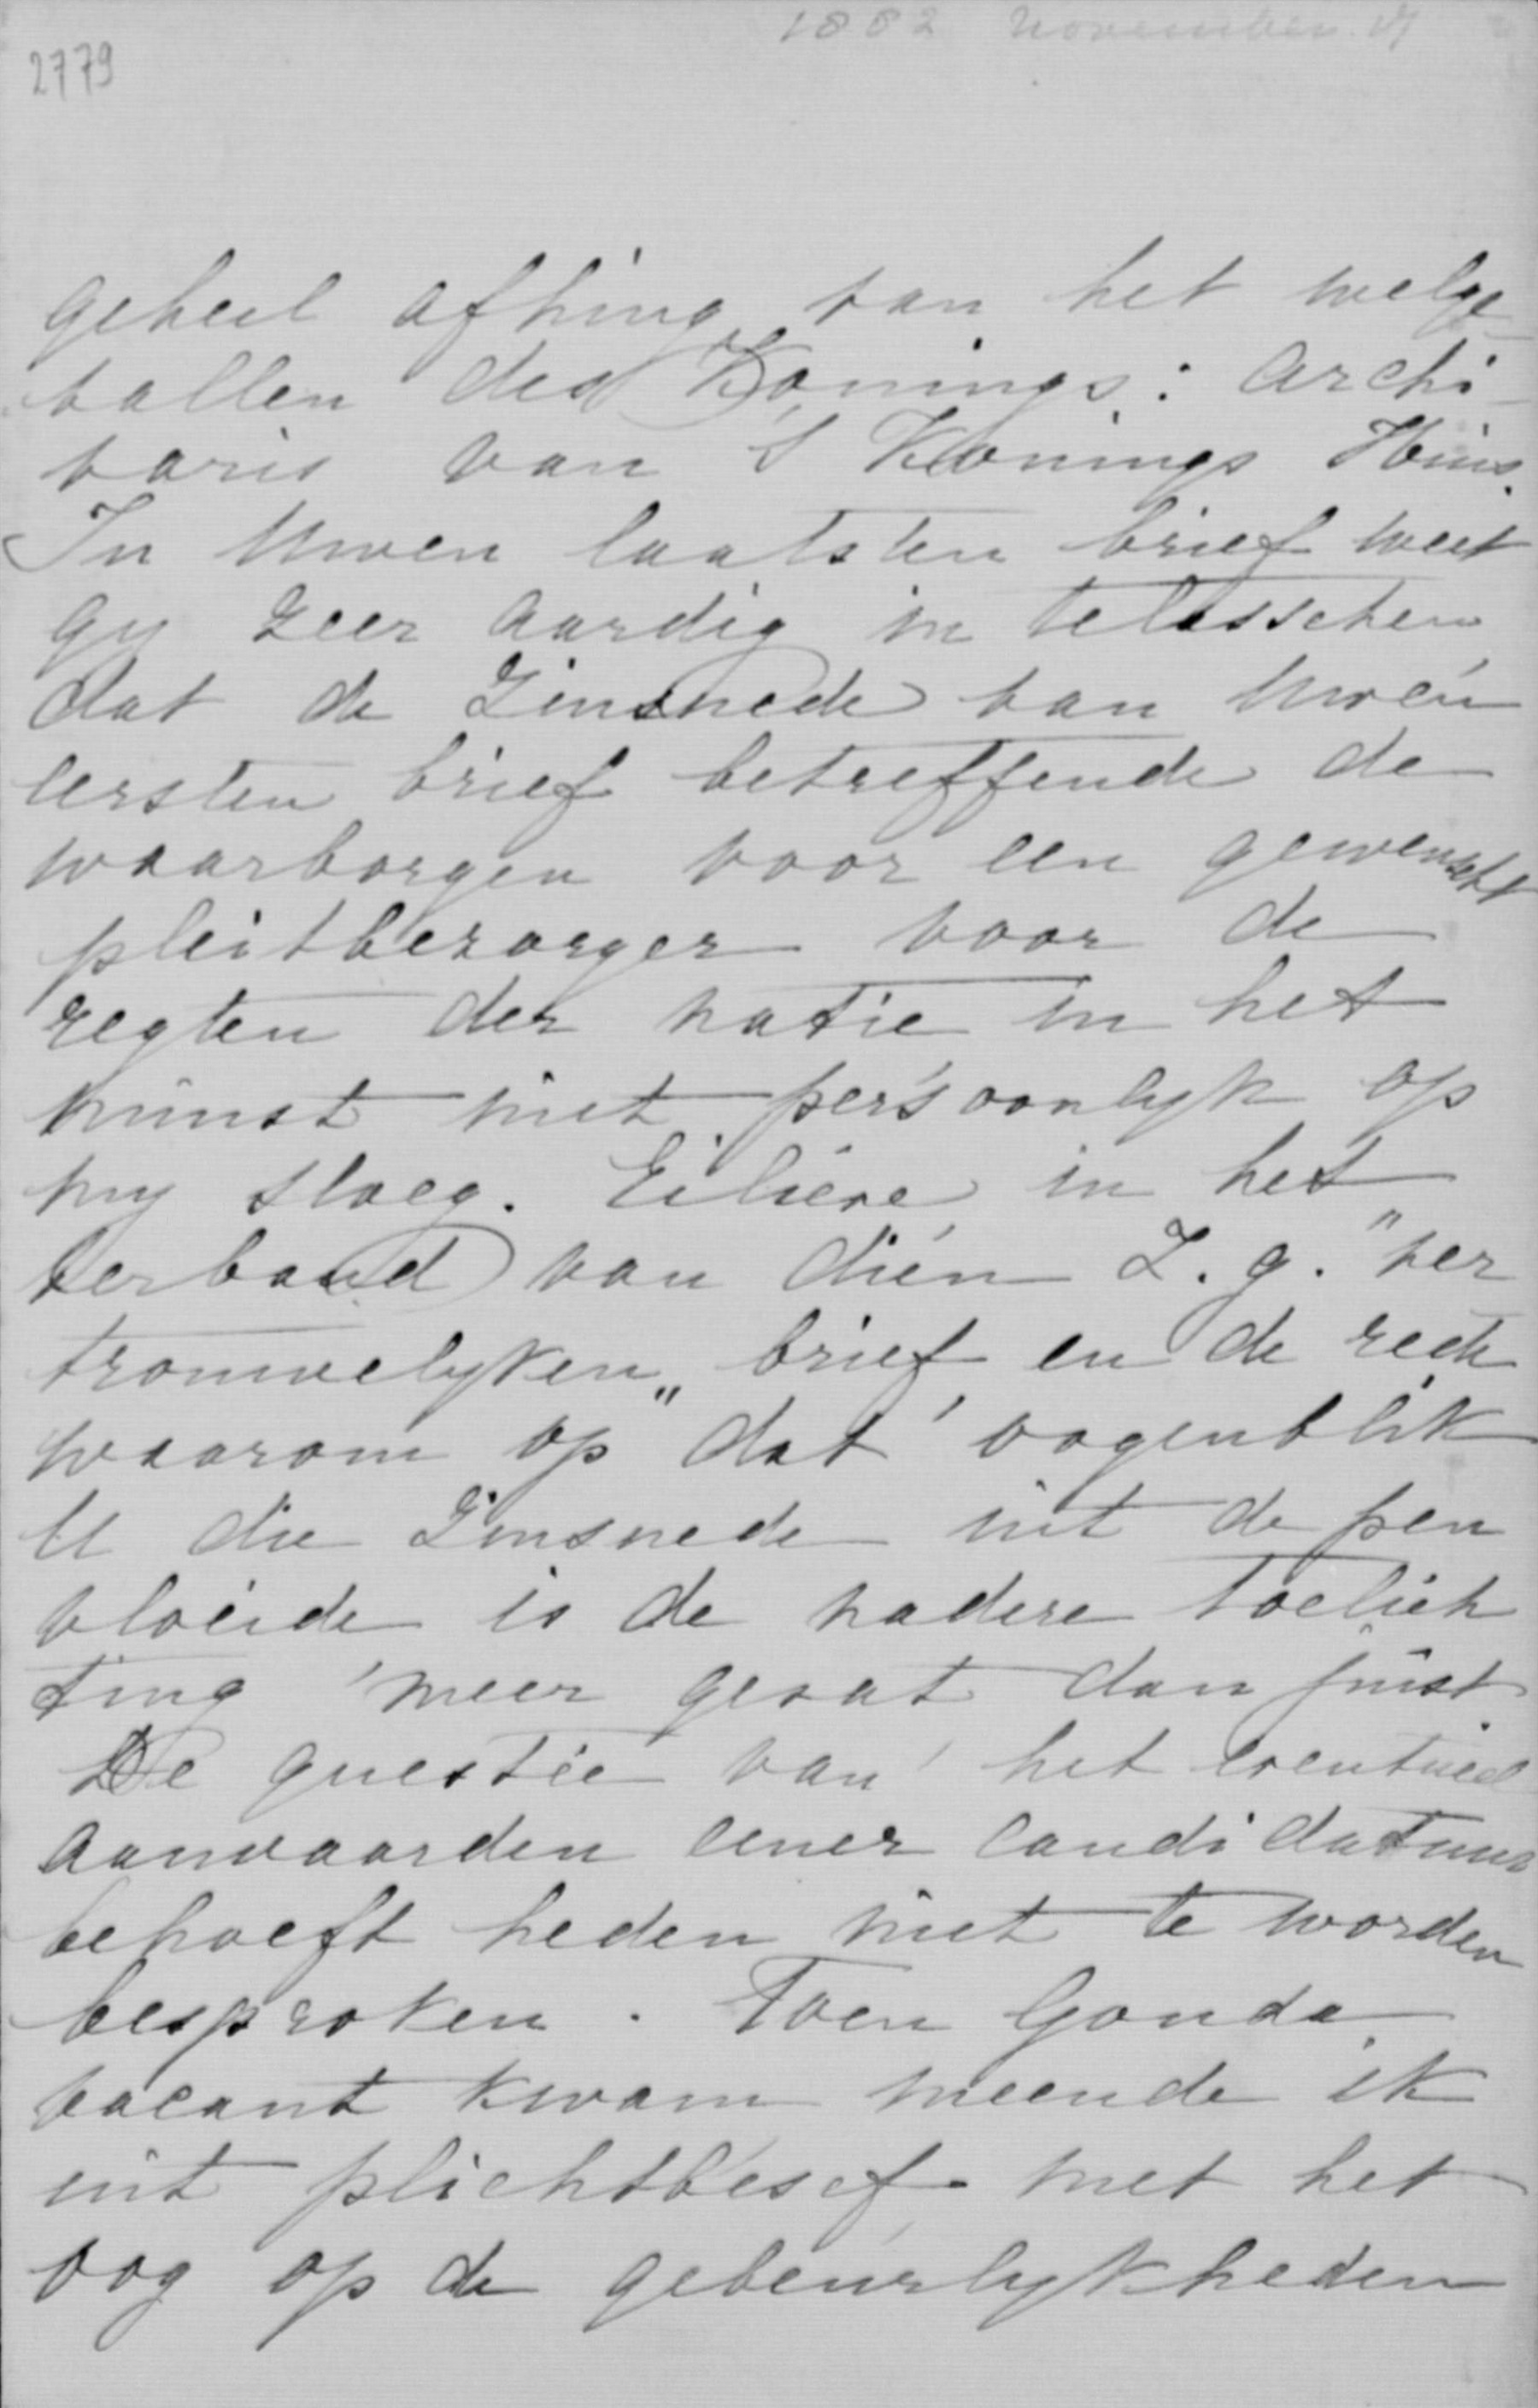 1882 November 17
2779
geheel afhing van het welge-
vallen des Konings: Archi-
varis van 's Konings Huis.
In Uwen laatsten brief weet
gy zeer aardig in te lasschen
dat de Zinsnede van Uwen
eersten brief betreffende de
waarborgen voor een gewenscht
pleitbezorger voor de
regten der natie in het
minst niet persoonlyk op
my sloeg. Eilieve in het
verband van dien Z.g. "ver
trouwelyken" brief en de rede
waarom op dat oogenblik
U die Zinsnede uit de pen
vloeide is de nadere toelich
ting meer gevat dan juist.
De questie van het eventueel
aanvaarden eener Candidatuur
behoeft heden niet te worden
besproken. Toen Gouda
vacant kwam meende ik
uit plichtbesef met het
oog op de gebeurlykheden